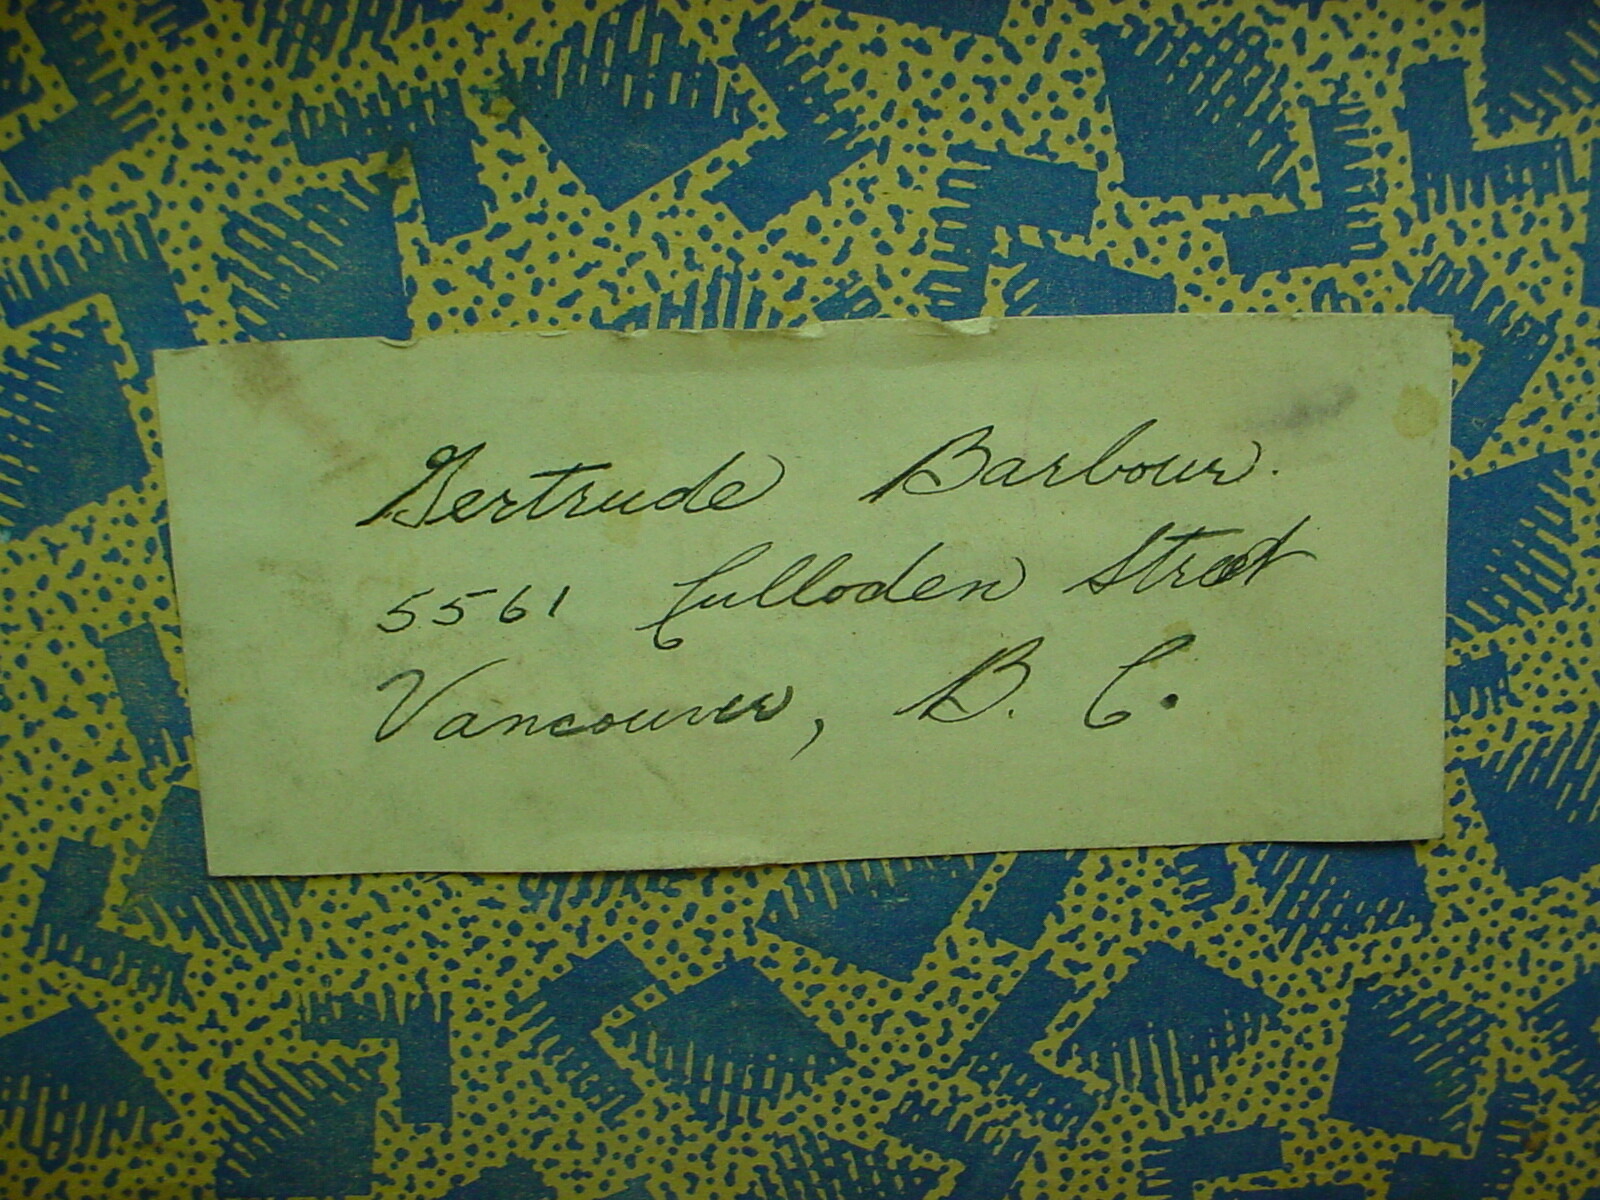 Gertrude Barbour.
5561 Culloden Street
Vancouver, B. C.